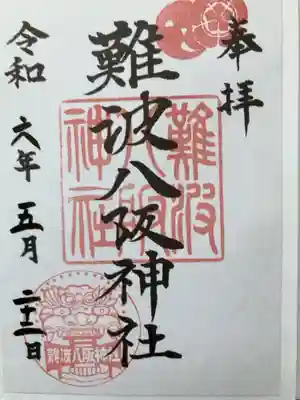 奉拝
難波八阪神社
令和六年五月二十二日
難波
八阪
神社
難波八阪神社